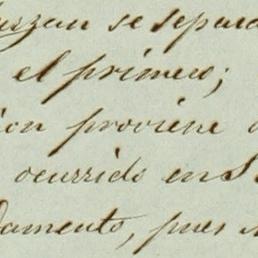 se separa
el primero;
ion proviene
ocurrido en S
damento, pues